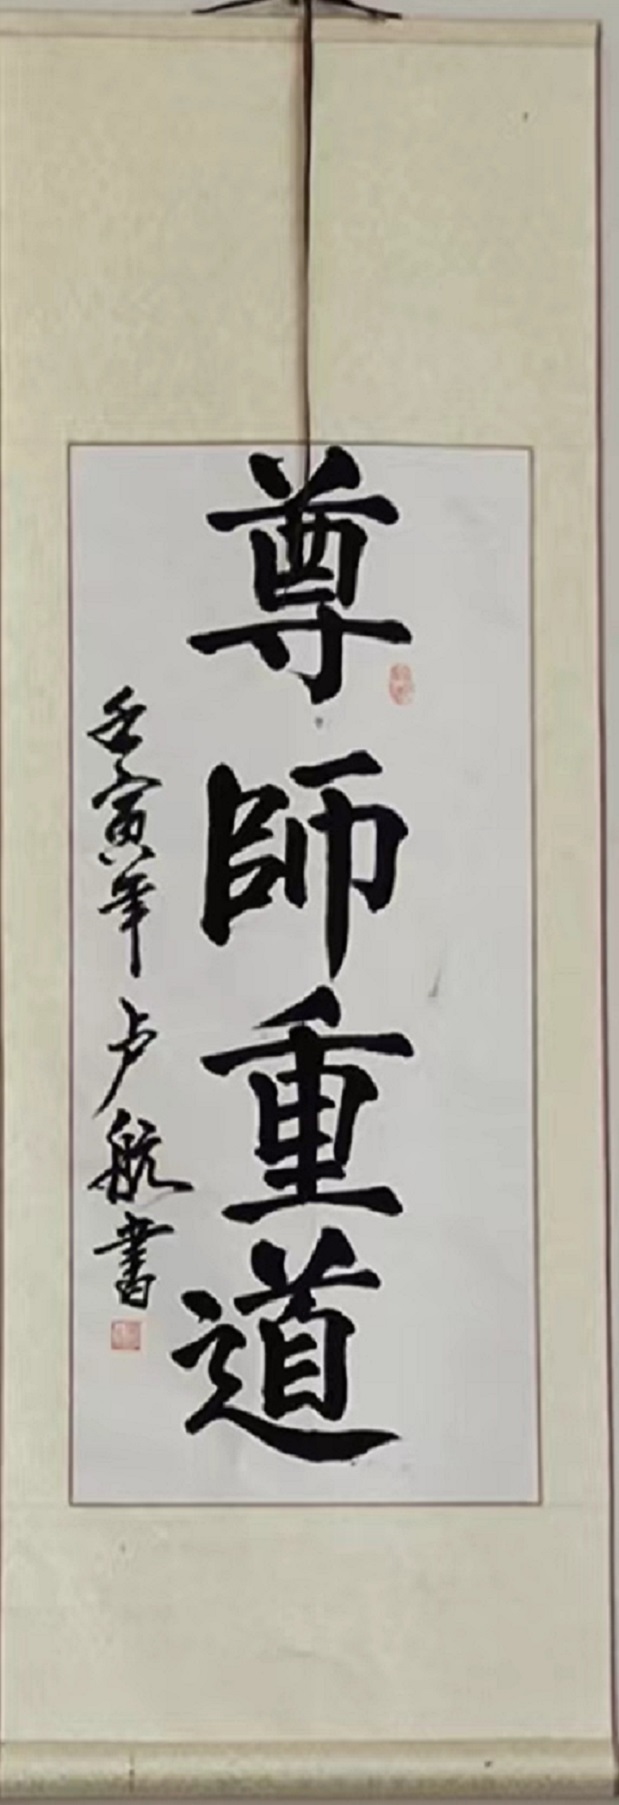 尊師重道
壬寅年卢航書